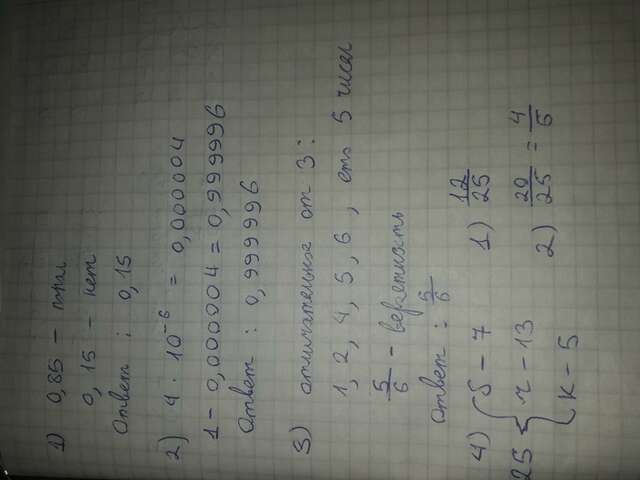 1) 0,85 – попал
0,15 – нет
Ответ : 0,15
2) 4 · 10⁻⁶ = 0,000004
1 – 0,000004 = 0,999996
Ответ : 0,999996
3) отличательные от 3 :
1, 2, 4, 5, 6, это 5 чисел
5/6 – вероятность
Ответ : 5/6
4) 25 { Б – 7 1) 12/25
ч – 13 2) 20/25 = 4/5
к – 5